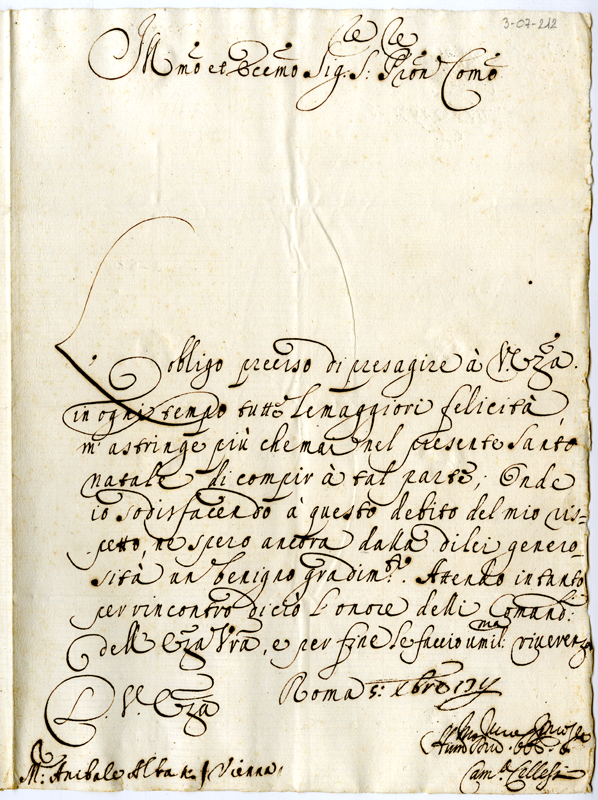 3-07-212
Ill.mo et Ecc.mo Sig.re S: Pron Com.o
L'obligo preciso di presagire à V. Ecza.
in ogni tempo tutte le maggiori felicità
m'astringe più che mai nel presente Santo
natale di compir à tal parte; Onde
io sodisfacendo à questo debito del mio ris-
petto, ne spero ancora dalla di lei genero
sità un benigno gradim.to. Attendo intanto
per rincontro di ciò l'onore delli Comand.
dell' Ecza Vra, e per fine le faccio umil.ma riverenza
Roma 5: Xbre
D. V. Ecza
Cam.o Cellesi
M.r Anibale Alban Vienna